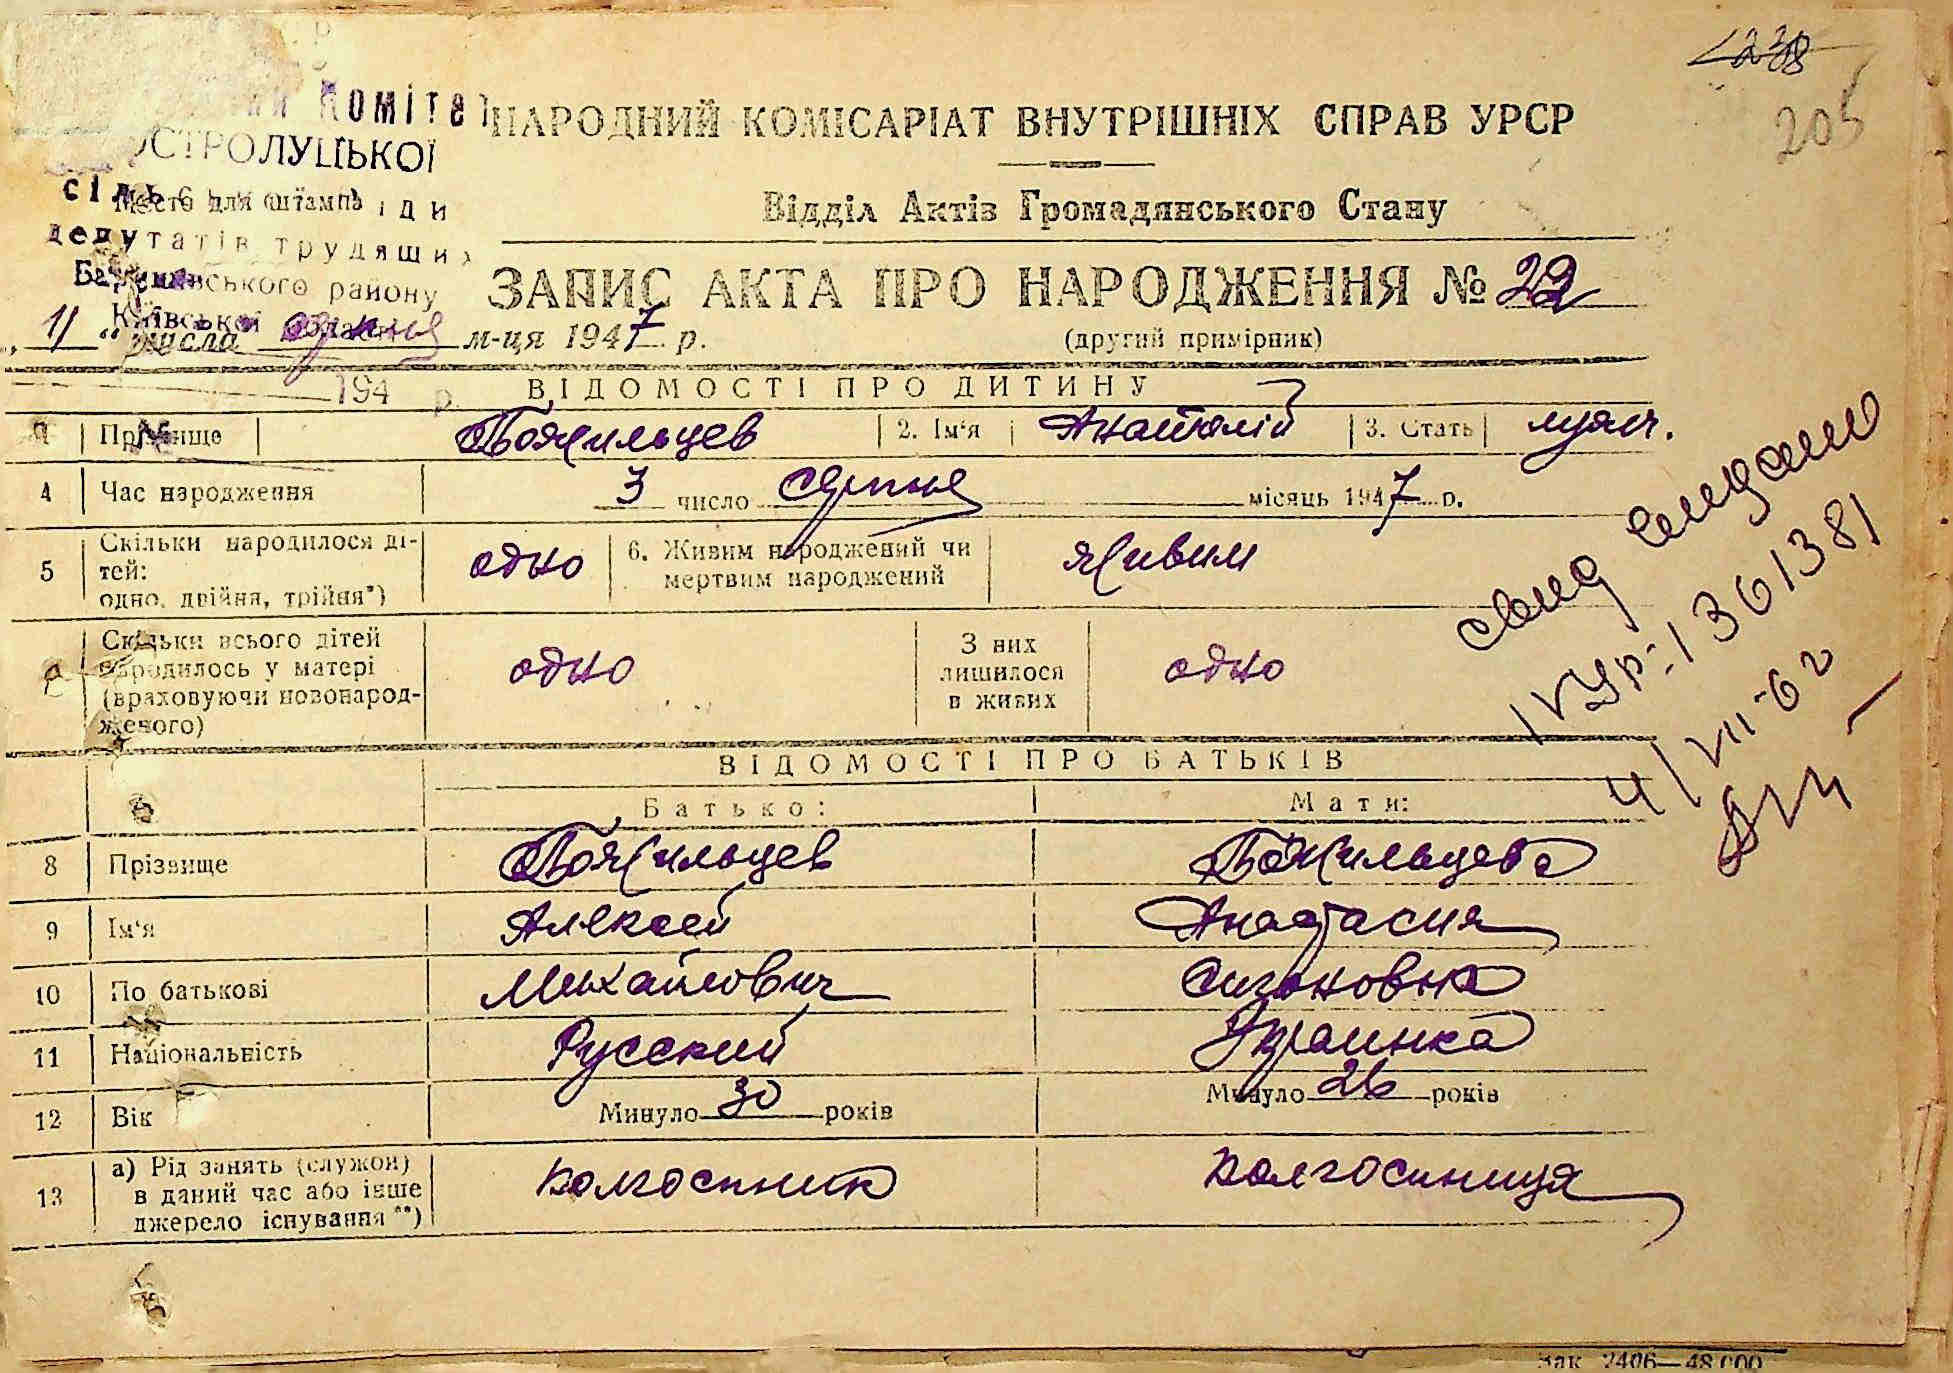 238
205
Комітет
ОСТРОЛУЦЬКОЇ
Место для штампа
депутатів трудящих
Баришівського району
Київської області
194 р.
№
НАРОДНИЙ КОМІСАРІАТ ВНУТРІШНІХ СПРАВ УРСР
Відділ Актів Громадянського Стану
ЗАПИС АКТА ПРО НАРОДЖЕННЯ № 22
„11“ числа серпня м-ця 1947 р. (другий примірник)
ВІДОМОСТІ ПРО ДИТИНУ
Прізвище Божильцев 2. Ім'я Анатолій 3. Стать муж.
4 Час народження 3 число серпня місяць 1947 р.
5 Скільки народилося ді-
тей:
одно, двійня, трійня*) одно 6. Живим народжений чи
мертвим народжений живим
Скільки всього дітей
народилось у матері
(враховуючи новонарод-
женого) одно З них
лишилося
в живих одно
ВІДОМОСТІ ПРО БАТЬКІВ
Батько: Мати:
8 Прізвище Божильцев Божильцева
9 Ім'я Алексей Анастасия
10 По батькові Михайлович Симоновна
11 Національність Русский Украинка
12 Вік Минуло 30 років Минуло 26 років
13 а) Рід занять (служби)
в даний час або інше
джерело існування **) колгоспник колгоспниця
свид видано
IV УР: 1361381
4/VII-62
Зак. 2406—48.000